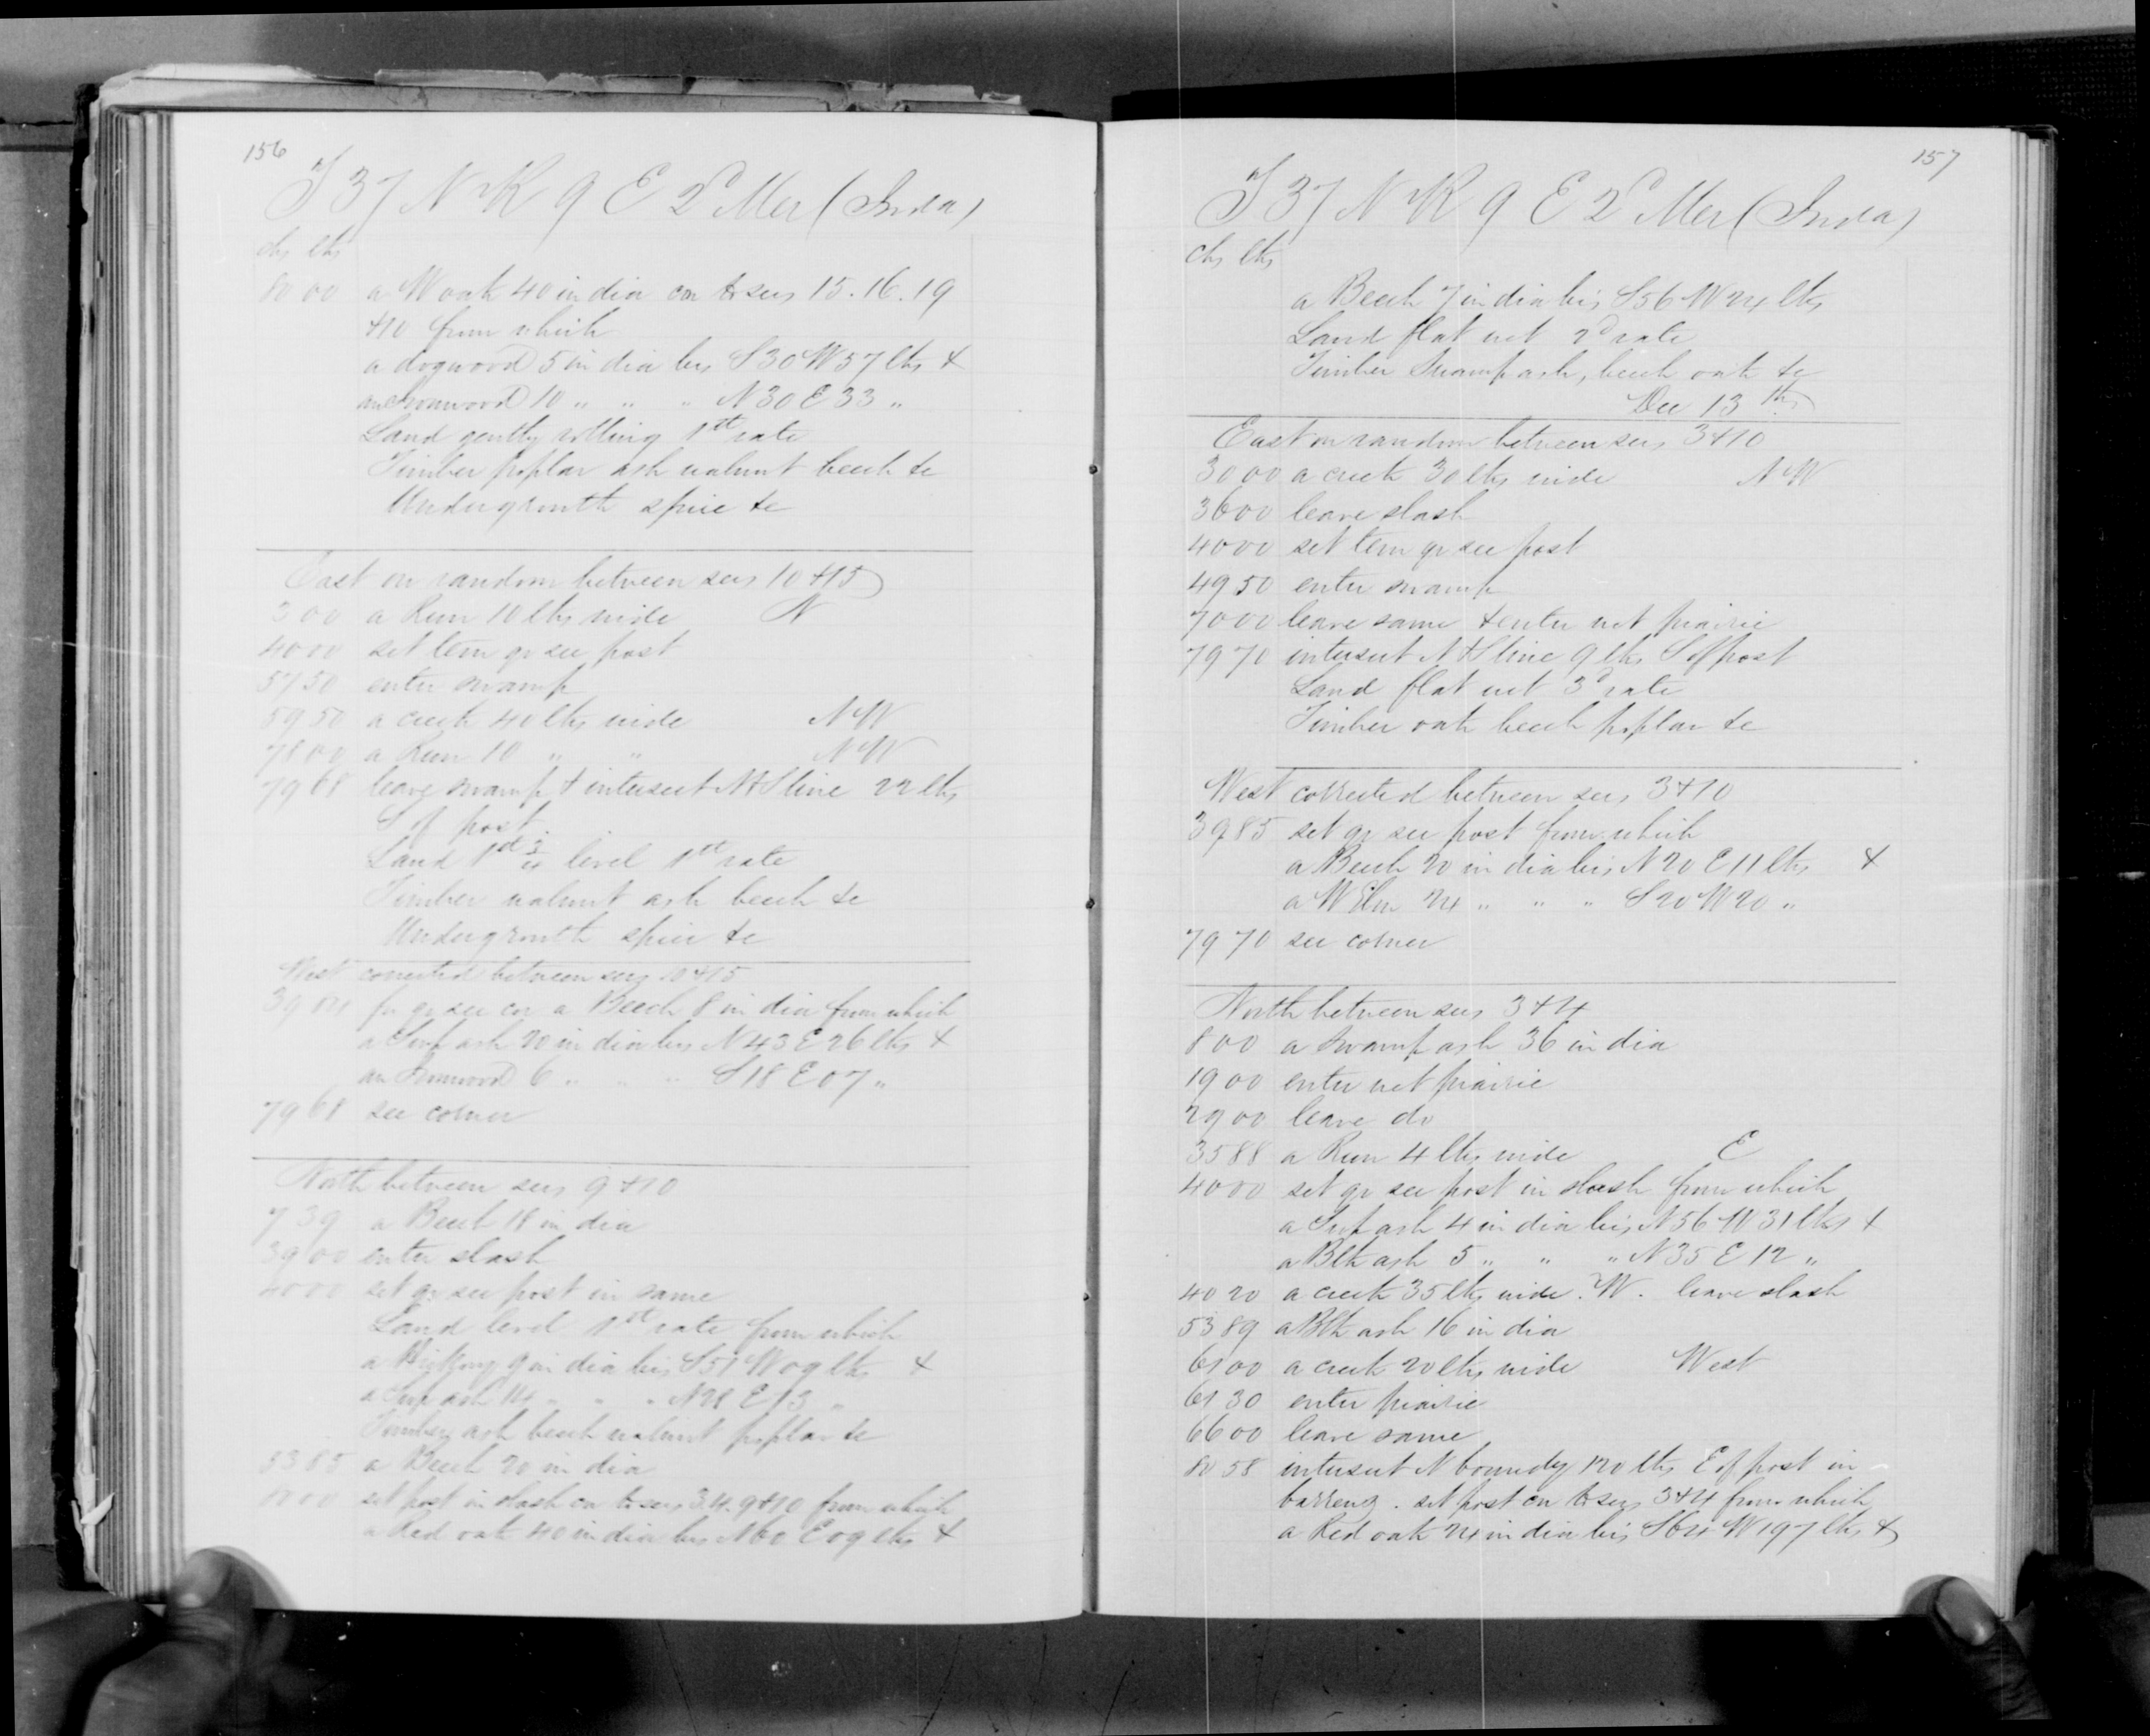 156
T 37 N R 9 E 2d Mer (Inda)
chs lks
80 00 a W oak 40 in dia cor to secs 15.16.19
+10 from which
a dogwood 5 in dia brs S 30 W 57 lks &
an Ironwood 10 " " " N 30 E 33 "
Land gently rolling 1st rate
Timber poplar ash walnut beech &c
Undergrowth spice &c
East on random between secs 10 + 15
3 00 a Run 10 lks wide N
40 00 set tem qr sec post
57 50 enter swamp
59 50 a creek 40 lks wide NW
78 00 a Run 10 " " NW
79 68 leave swamp & intersect N & S line 22 lks
S of post
Land 1st level 1st rate
Timber walnut ash beech &c
Undergrowth spice &c
West corrected between secs 10 + 15
39 84 for qr sec cor a Beech 8 in dia from which
a Swp ash 20 in dia brs N 43 E 26 lks &
an Ironwood 6 " " " S 18 E 07 "
79 68 sec corner
North between secs 9 + 10
7 39 a Beech 18 in dia
39 00 enter slash
40 00 set qr sec post in same
Land level 1st rate from which
a Hickory 9 in dia brs S 51 W 09 lks &
a Swp ash 14 " " " N 28 E 13 "
Timber ash beech walnut poplar &c
53 85 a Beech 20 in dia
80 00 set post in slash cor to secs 3.4.9+10 from which
a Red oak 40 in dia brs N 60 E 09 lks &
157
T 37 N R 9 E 2d Mer (Inda)
chs lks
a Beech 7 in dia brs S 56 W 24 lks
Land flat wet 2d rate
Timber Swamp ash, beech oak &c
Dec 13th
East on random between secs 3 + 10
30 00 a creek 30 lks wide NW
36 00 leave slash
40 00 set tem qr sec post
49 50 enter swamp
70 00 leave same & enter wet prairie
79 70 intersect N & S line 9 lks S of post
Land flat wet 3d rate
Timber oak beech poplar &c
West corrected between secs 3 + 10
39 85 set qr sec post from which
a Beech 20 in dia brs N 20 E 11 lks &
a W Elm 24 " " " S 20 W 20 "
79 70 sec corner
North between secs 3 + 4
8 00 a swamp ash 36 in dia
19 00 enter wet prairie
29 00 leave do
35 88 a Run 4 lks wide E
40 00 set qr sec post in slash from which
a Swp ash 4 in dia brs N 56 W 31 lks &
a Blk ash 5 " " " N 35 E 12 "
40 20 a creek 35 lks wide. W. leave slash
53 89 a Blk ash 16 in dia
61 00 a creek 20 lks wide West
61 30 enter prairie
66 00 leave same
80 58 intersect N boundy 120 lks E of post in
barrens. set post cor to secs 3 + 4 from which
a Red oak 24 in dia brs S 64 W 197 lks &